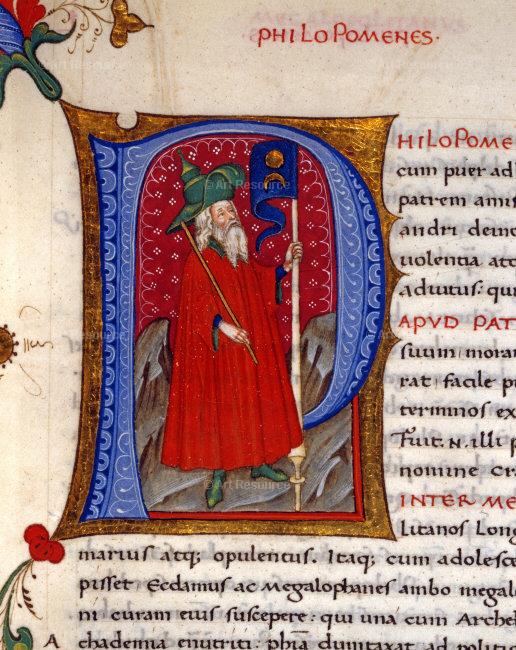 PHILOPOMENES.
HILOPOME
cum puer ad
patrem amis
andri deind
uiolentia
adiutus: qu
APVD PAT
suum morat
rat facile p
terminos ex
Fuit .N. illi p
nomine Cr
INTER ME
litanos Long
marius atq; opulentus. Itaq; cum adolesce
pisset Ecdamus ac Megalophanes ambo megal
ni curam eius suscepere: qui una cum Arche
A chademia enutriti: phia dumtaxat ad politi
© Art Resource
© Art Resource
© Art Resource